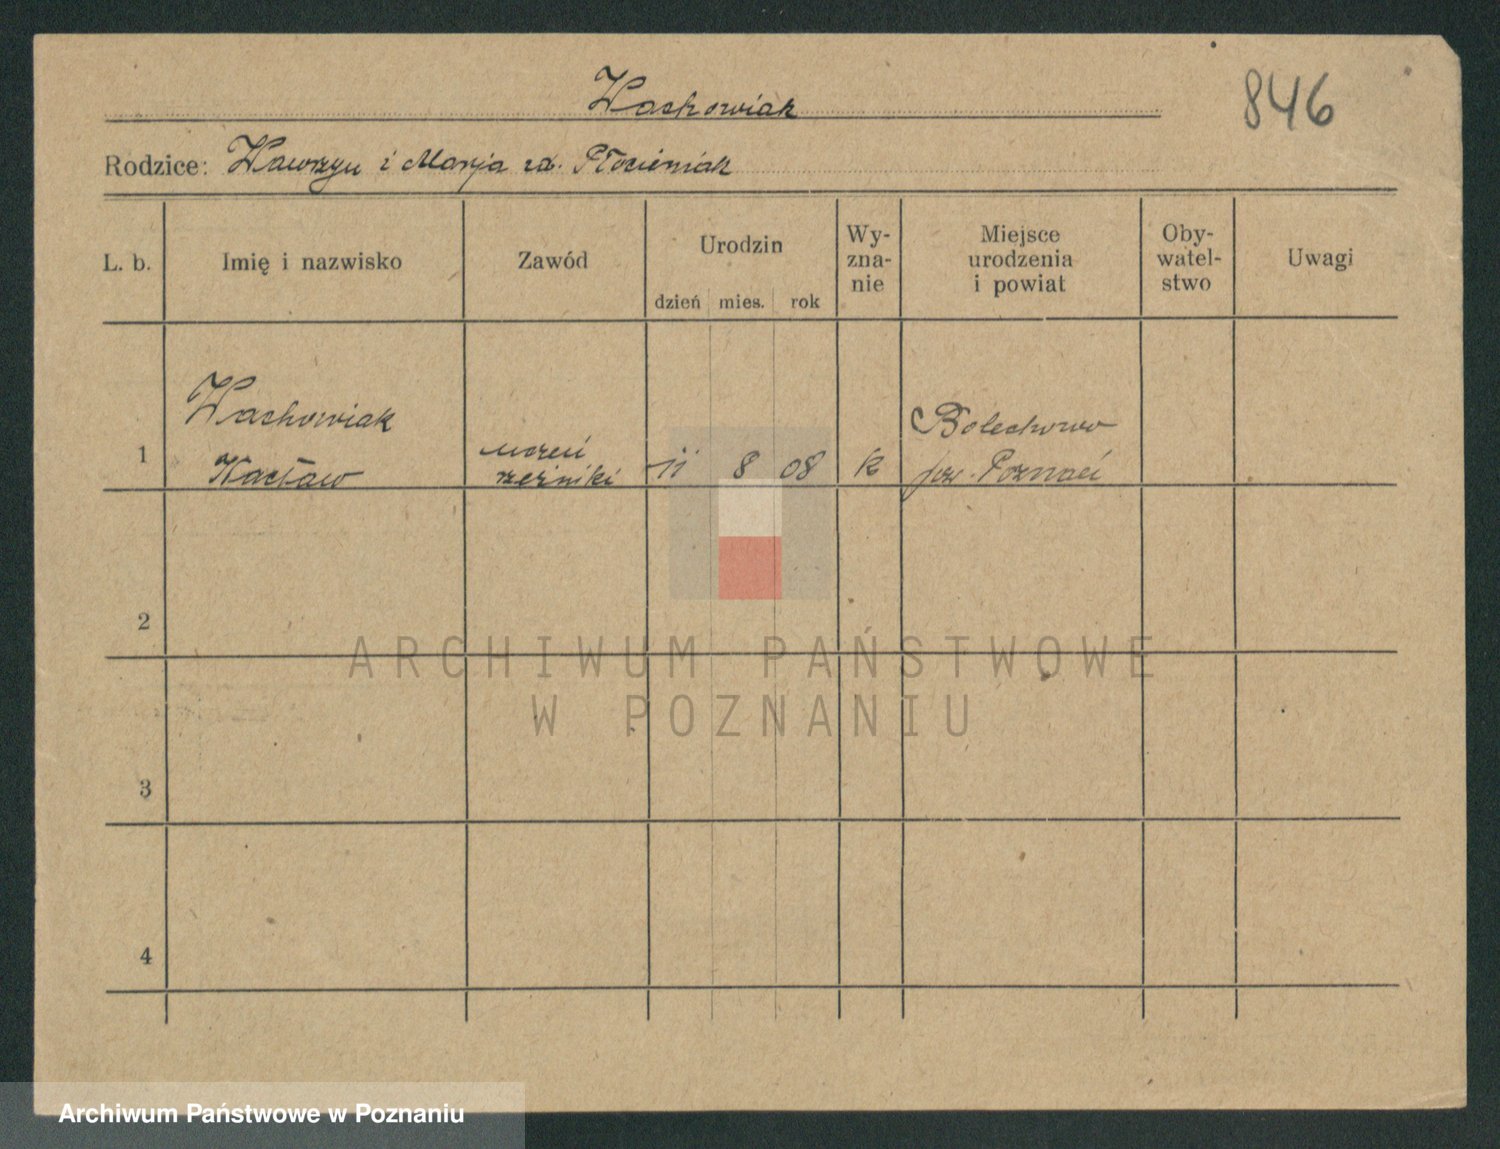 Wachowiak
846
Rodzice: Wawrzyn i Marja zd. Płocieniak
L. b.
Imię i nazwisko
Zawód
Urodzin
dzień mies. rok
Wy-
zna-
nie
Miejsce
urodzenia
i powiat
Oby-
watel-
stwo
Uwagi
1
Wachowiak
Wacław
uczeń
rzeźnicki
11 8 08
k
Bolechowo
pow. Poznań
2
3
4
ARCHIWUM PAŃSTWOWE
W POZNANIU
Archiwum Państwowe w Poznaniu